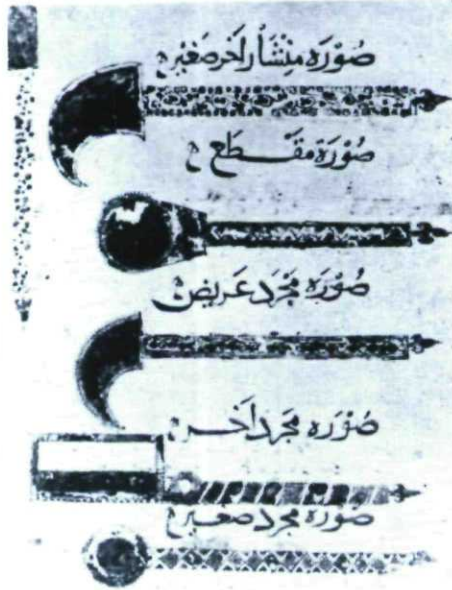 صُوْرَة مِنْشَأر اَخَر صَغِيْر
صُوْرَة مَقْطَع
صُوْرَة مِجْرَد عَرِيْض
صُوْرَة مِجْرَد اَخَر
صُوْرَة مِجْرَد صَغِيْر